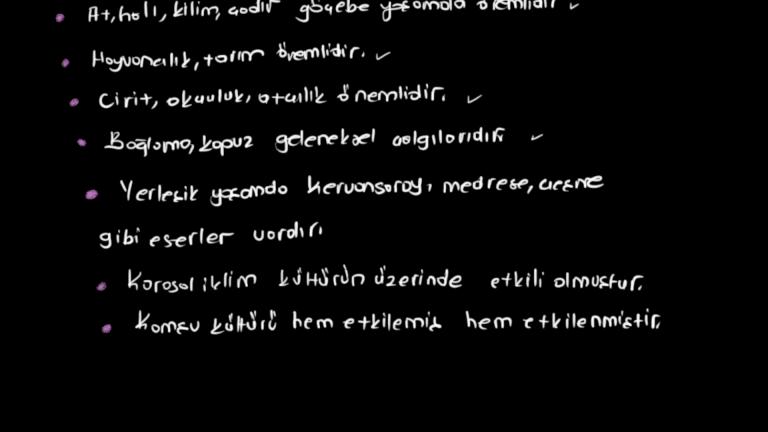 At, halı, kilim, çadır göçebe yaşamda önemlidir
Hayvancılık, tarım önemlidir.
Cirit, okçuluk, atçılık önemlidir.
Bağlama, kopuz geleneksel çalgılarıdır
Yerleşik yaşamda kervansaray, medrese, çeşme
gibi eserler vardır.
Karasal iklim kültürün üzerinde etkili olmuştur.
Komşu kültürü hem etkilemiş hem etkilenmiştir.